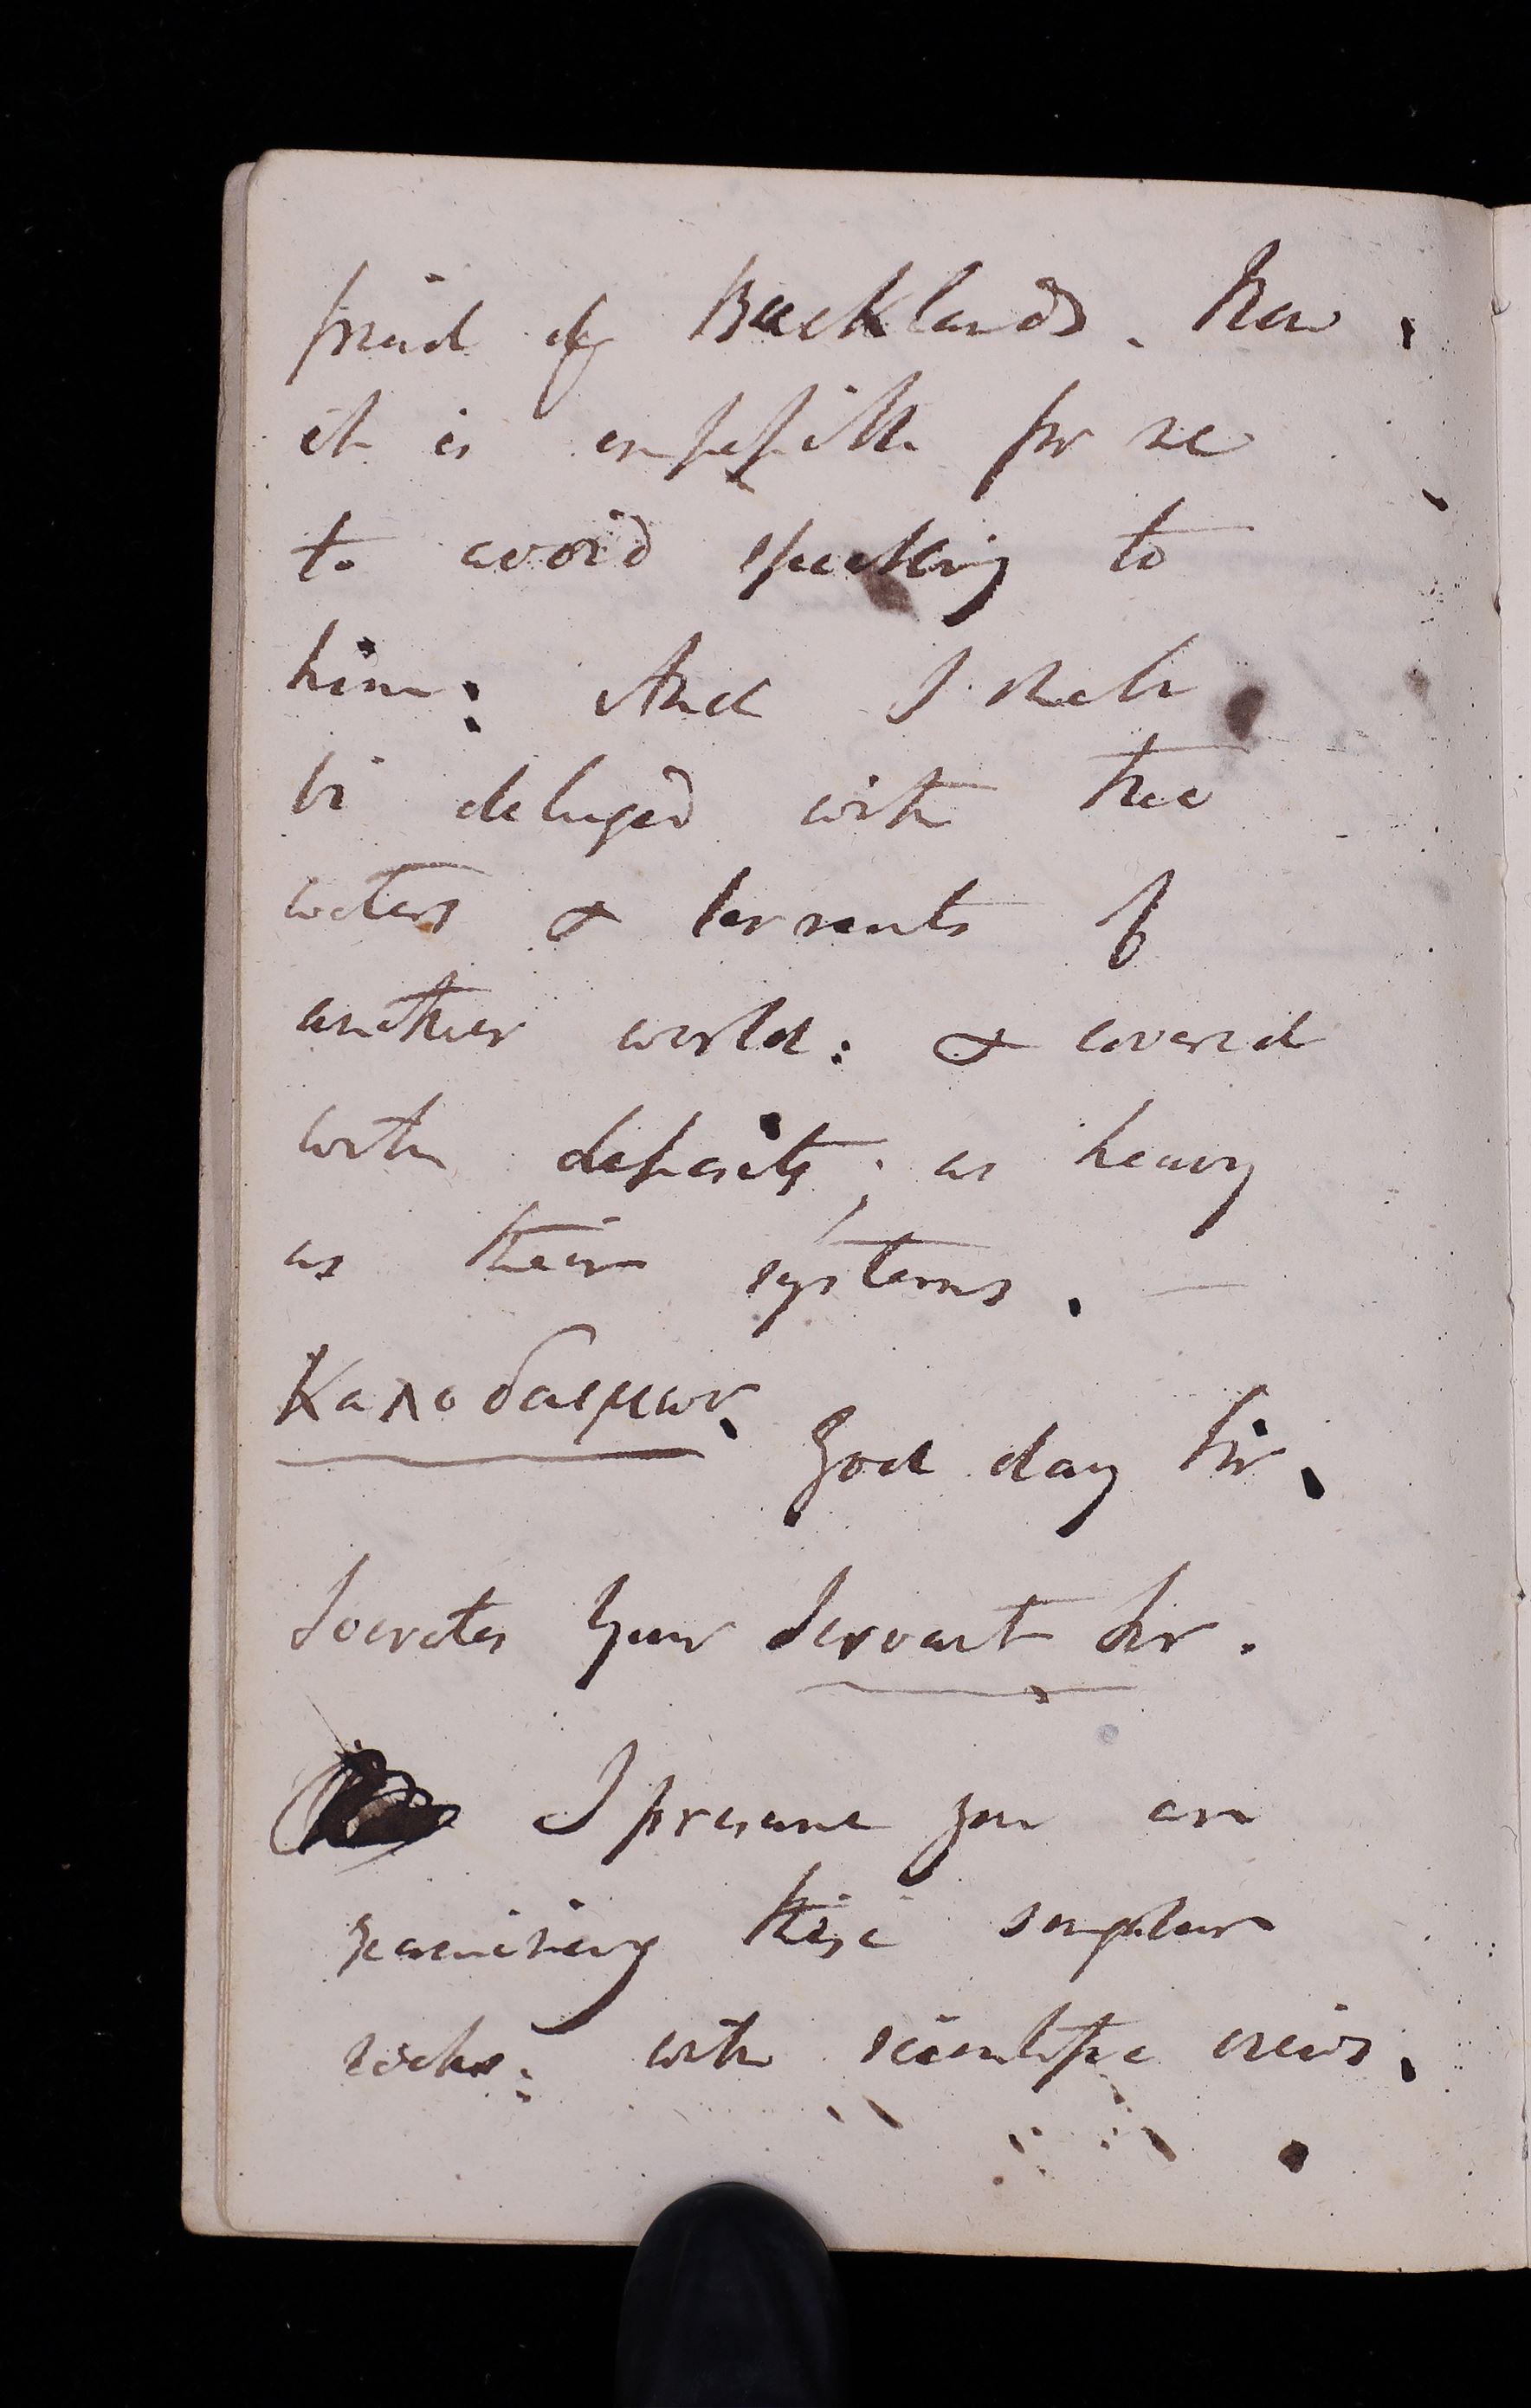 friend of Bucklands. Now
it is impossible for me
to avoid speaking to
him: And I shall
be deluged with the
waters & torrents of
another world: & covered
with deposits; as heavy
as their systems. —
Καλοδαιμων. Good day Sir.
Socrates Your Servant Sir.
I presume you are
examining these singular
rocks: with scientific views.